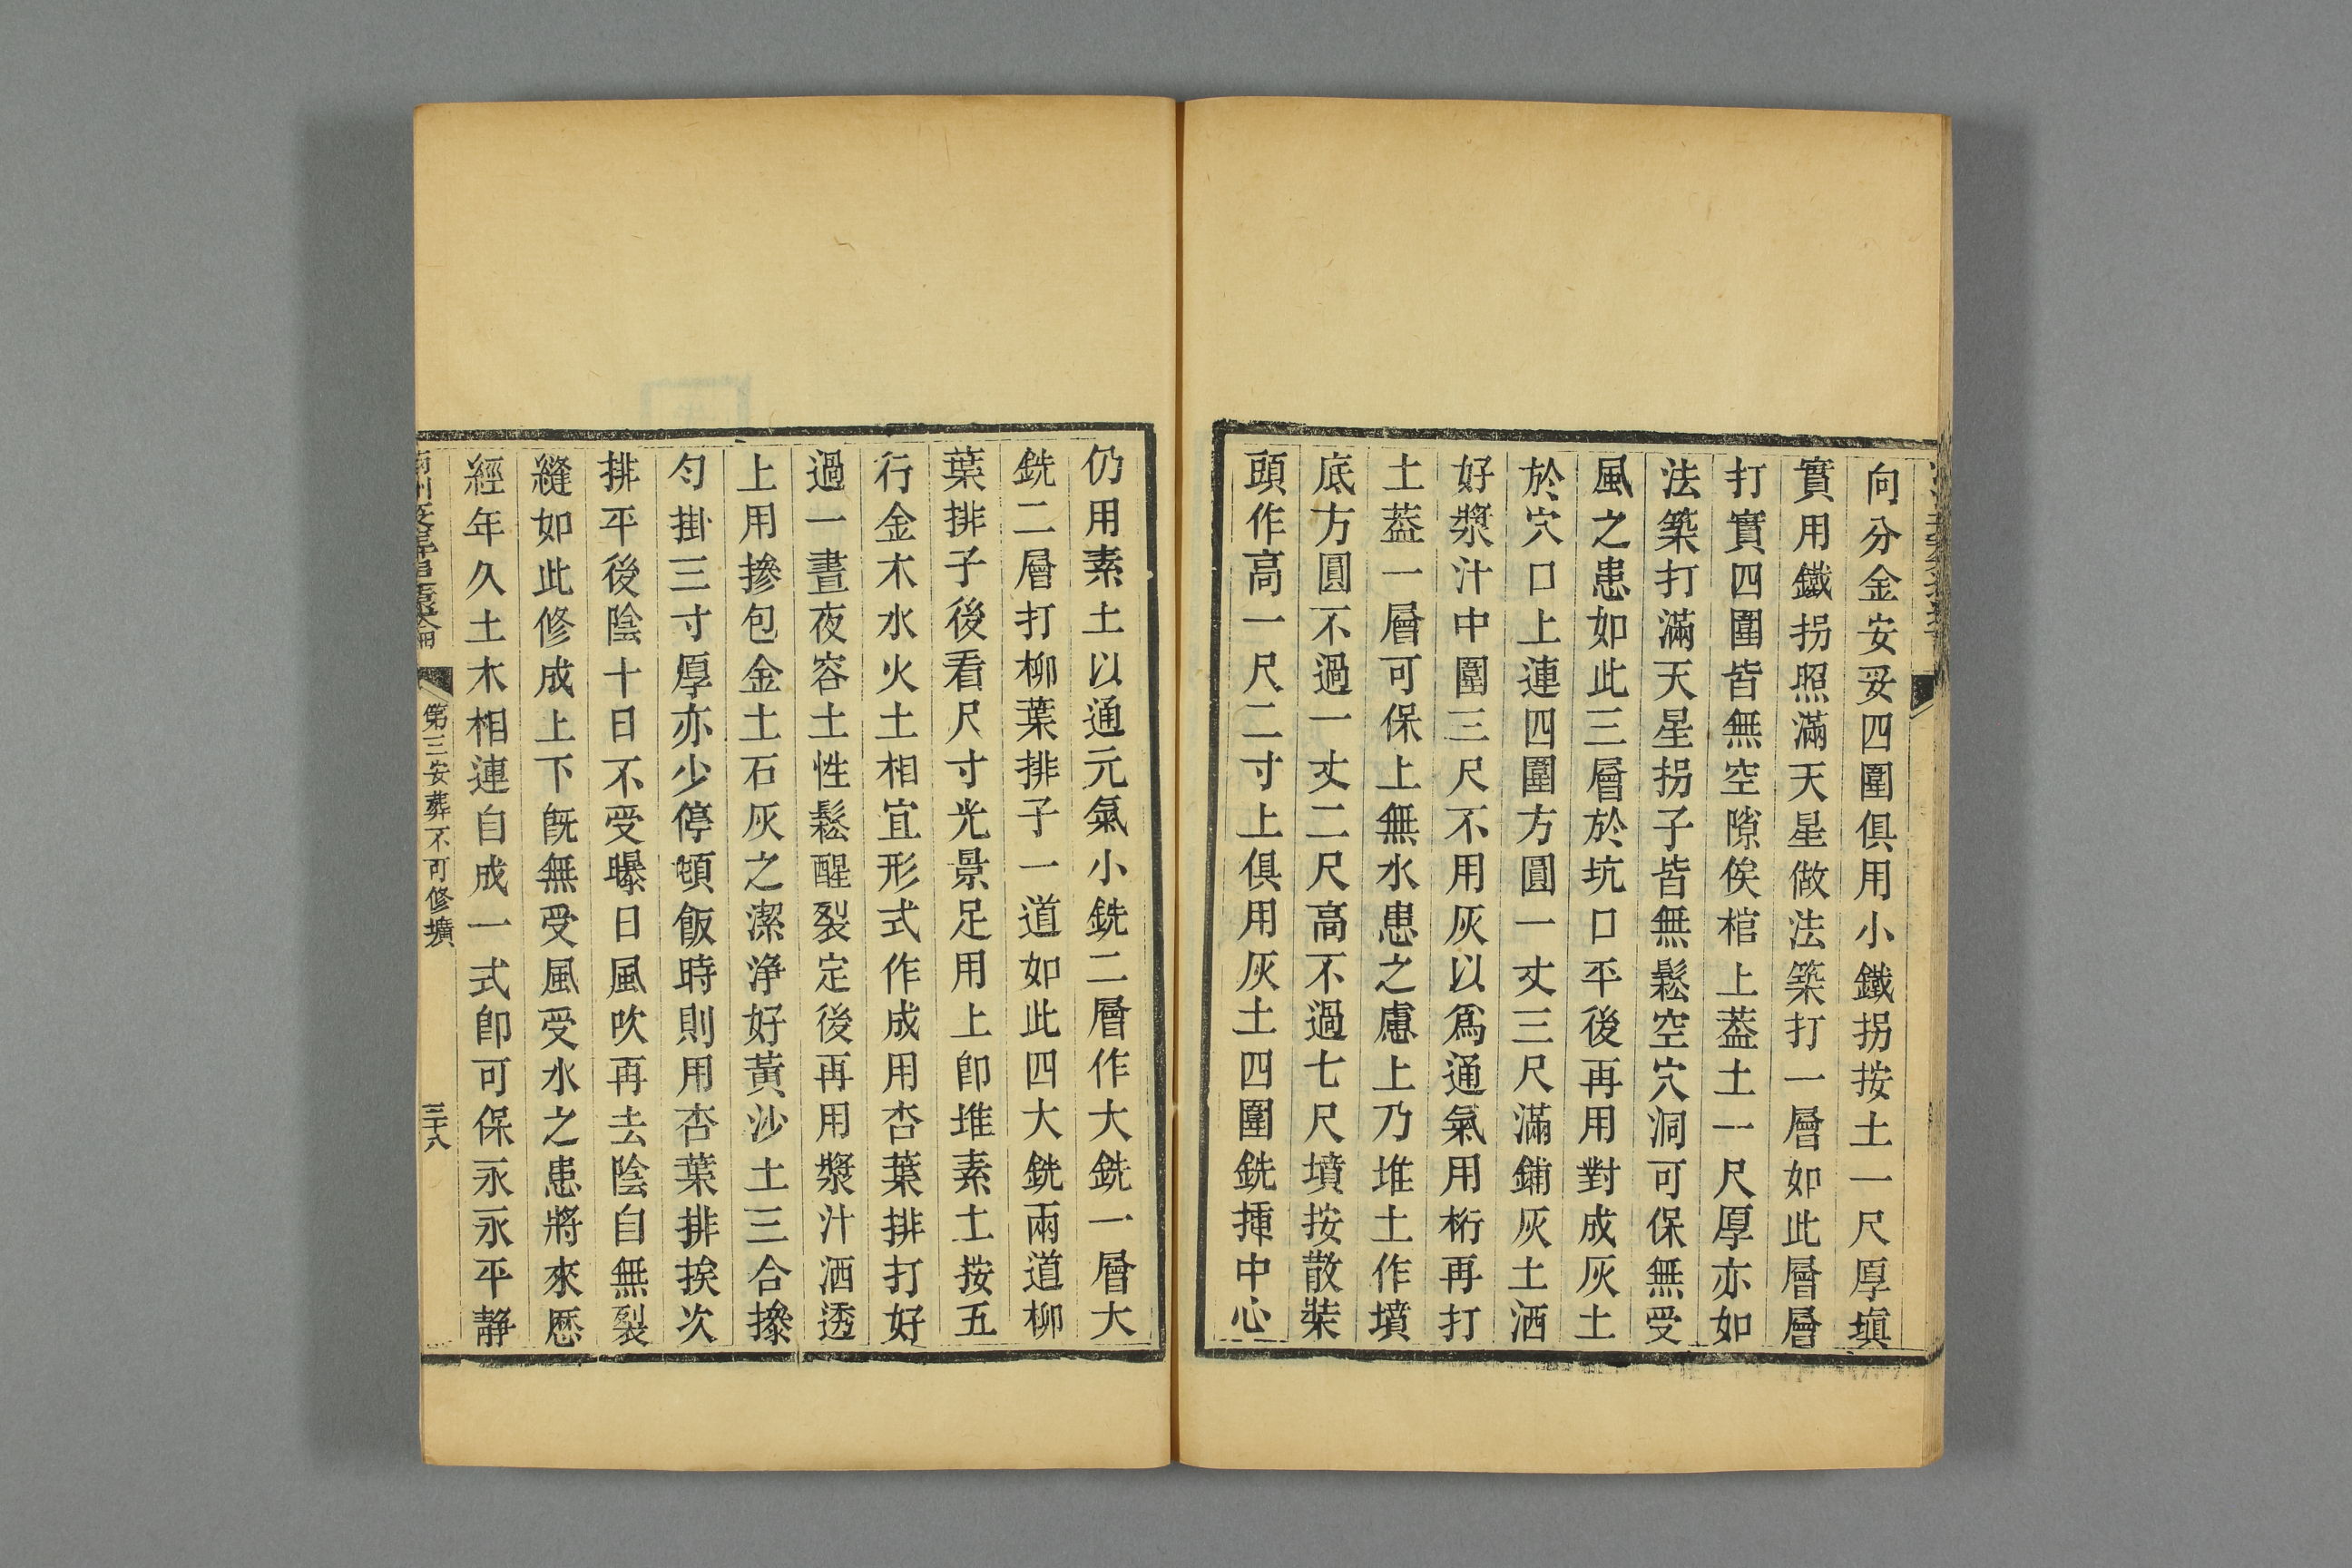 向分金安妥四圍俱用小鐵拐按土一尺厚填
實用鐵拐照滿天星做法築打一層如此層層
打實四圍皆無空隙俟棺上葢土一尺厚亦如
法築打滿天星拐子皆無鬆空穴洞可保無受
風之患如此三層於坑口平後再用對成灰土
於穴口上連四圍方圓一丈三尺滿鋪灰土洒
好漿汁中圍三尺不用灰以爲通氣用桁再打
土葢一層可保上無水患之慮上乃堆土作墳
底方圓不過一丈二尺高不過七尺墳按散裝
頭作高一尺二寸上俱用灰土四圍銑揷中心
仍用素土以通元氣小銑二層作大銑一層大
銑二層打柳葉排子一道如此四大銑兩道柳
葉排子後看尺寸光景足用上卽堆素土按五
行金木水火土相宜形式作成用杏葉排打好
過一晝夜容土性鬆醒裂定後再用漿汁洒透
上用摻包金土石灰之潔浄好黃沙土三合摻
勻掛三寸厚亦少停頓飯時則用杏葉排挨次
排平後陰十日不受曝日風吹再去陰自無裂
縫如此修成上下旣無受風受水之患將來歷
經年久土木相連自成一式卽可保永永平靜
第三安葬不可修壙
三十八